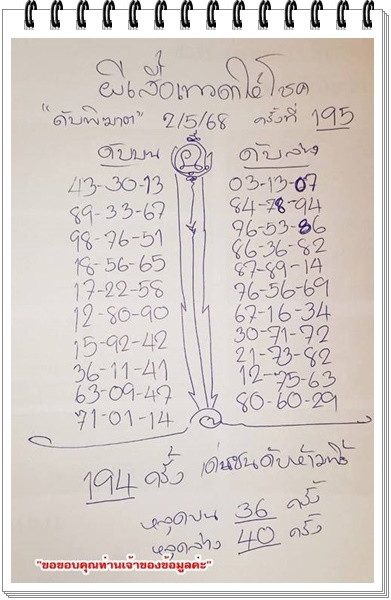 ผีเสื้อเทวดาให้โชค
"ดับพิฆาต" 2/5/68 ครั้งที่ 195
ดับบน
43-30-13
89-33-67
98-76-51
18-56-65
17-22-58
12-80-90
15-92-42
36-11-41
63-09-47
71-01-14
ดับล่าง
03-13-07
84-78-94
76-53-86
86-36-82
87-89-14
76-56-69
67-16-34
30-71-72
21-73-82
12-75-63
80-60-29
194 ครั้ง เด่นชนดับห้ามทิ้ง
หลุดบน 36 ครั้ง
หลุดล่าง 40 ครั้ง
"ขอขอบคุณท่านเจ้าของข้อมูลค่ะ"